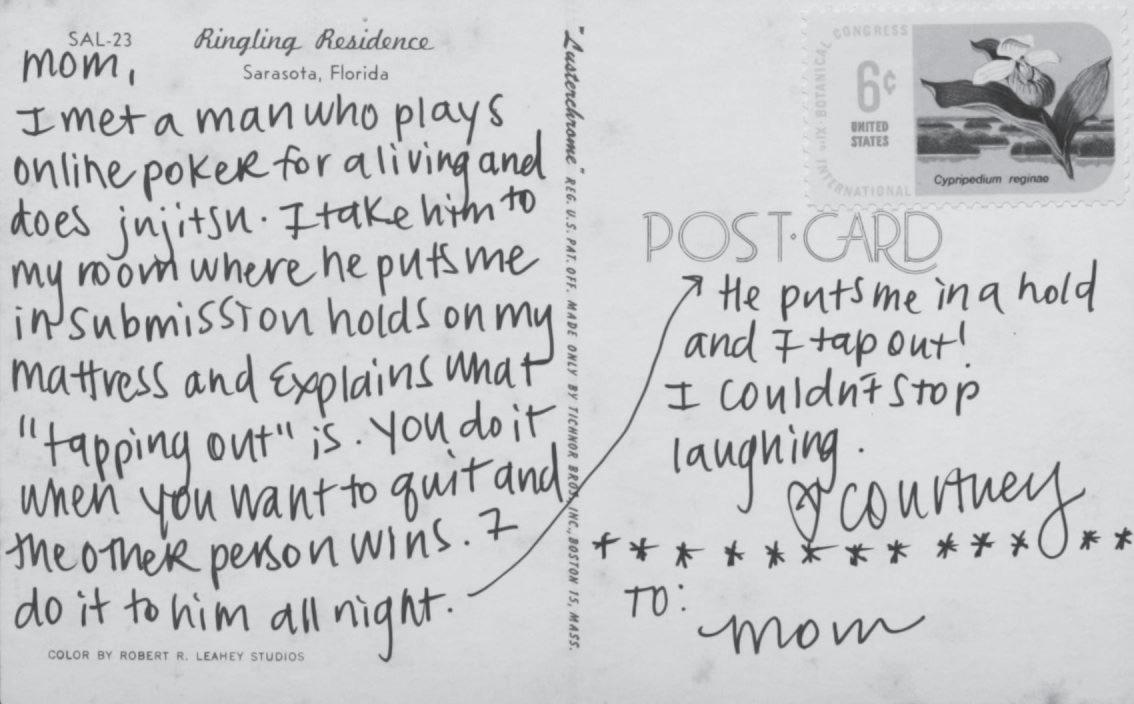 SAL-23
Ringling Residence
Sarasota, Florida
mom,
I met a man who plays
online poker for a living and
does jnjitsu. I take him to
my room where he puts me
in submission holds on my
mattress and explains what
"tapping out" is. You do it
when you want to quit and
the other person wins. I
do it to him all night.
COLOR BY ROBERT R. LEAHEY STUDIOS
"Lusterchrome" REG. U.S. PAT. OFF. MADE ONLY BY TICHNOR BROS., INC., BOSTON 15, MASS.
XI INTERNATIONAL BOTANICAL CONGRESS
6¢
UNITED
STATES
Cypripedium reginae
POST·CARD
He puts me in a hold
and I tap out!
I couldn't stop
laughing.
Courtney
TO:
mom